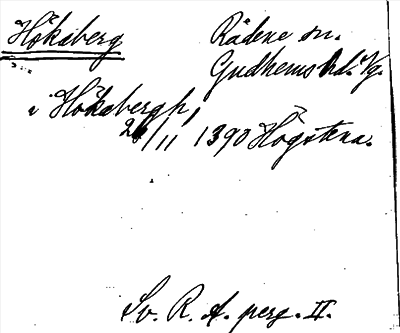 Höksberg
Rådene sn.
Gudhems hd. Vg.
i Höksbergh,
26/11 1390 Högstena.
Sv. R. A. perg. II.